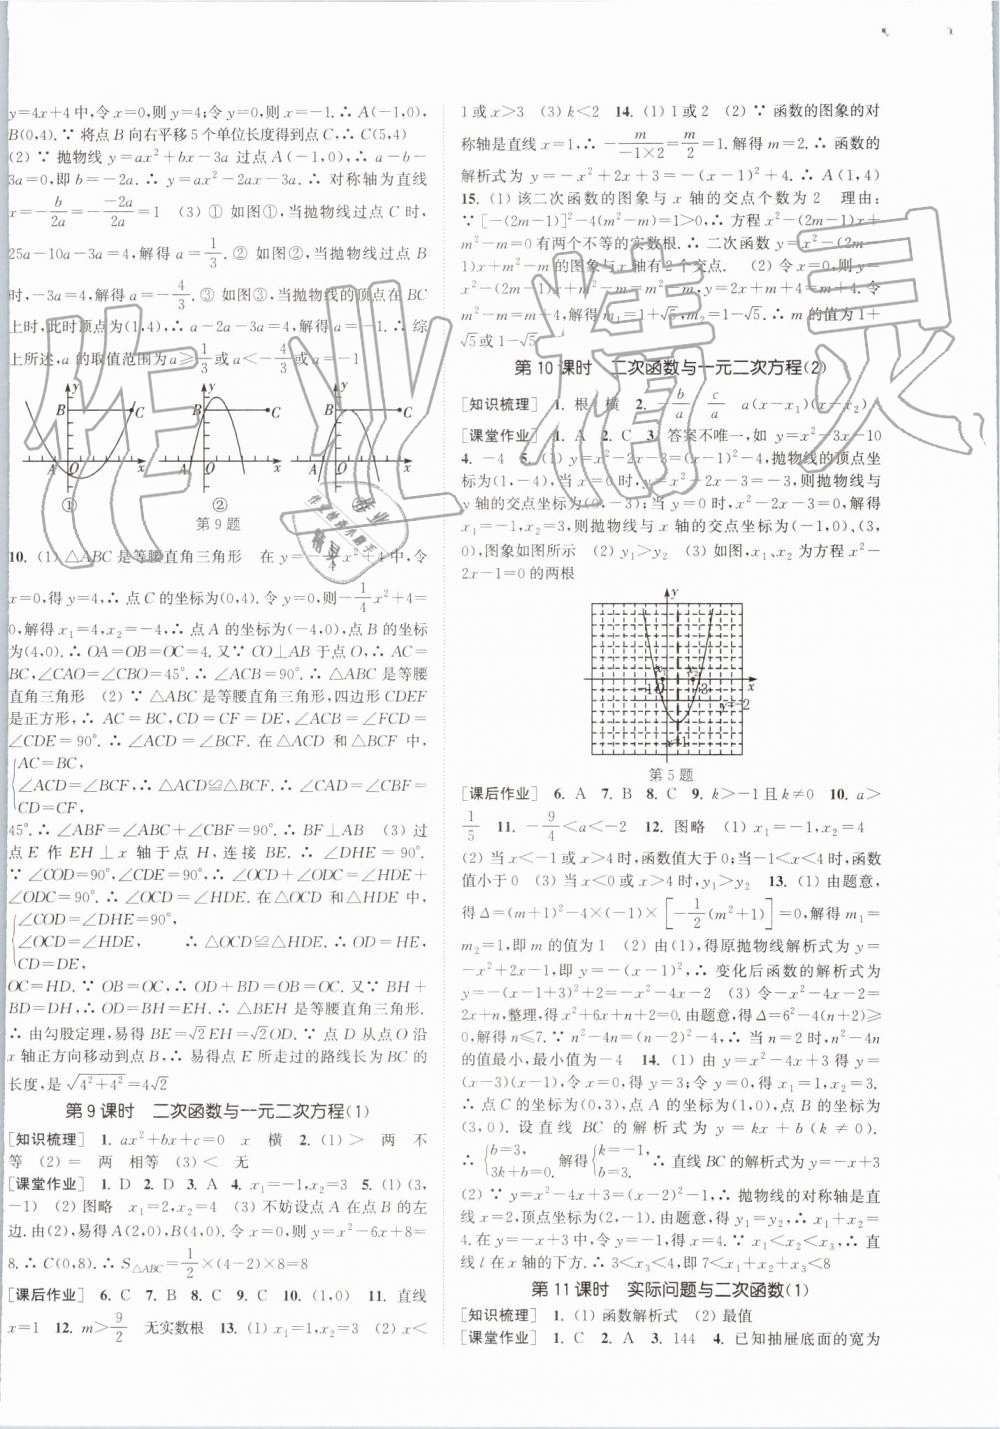 y=4x+4中,令x=0,则y=4;令y=0,则x=-1.∴A(-1,0),
B(0,4).∵将点B向右平移5个单位长度得到点C,∴C(5,4)
(2)∵抛物线y=ax²+bx-3a过点A(-1,0),∴a-b-
3a=0,即b=-2a.∴y=ax²-2ax-3a.∴对称轴为直线
x=-b/2a=-(-2a)/2a=1 (3)①如图①,当抛物线过点C时,
25a-10a-3a=4,解得a=1/3.②如图②,当抛物线过点B
时,-3a=4,解得a=-4/3.③如图③,当抛物线的顶点在BC
上时,此时顶点为(1,4),∴a-2a-3a=4,解得a=-1.∴综
上所述,a的取值范围为a≥1/3或a<-4/3或a=-1
y B C A O x ①
y B C A O x ②
y B C A O x ③
第9题
10. (1)△ABC是等腰直角三角形 在y=-1/4x²+4中,令
x=0,得y=4,∴点C的坐标为(0,4).令y=0,则-1/4x²+4=
0,解得x₁=4,x₂=-4,∴点A的坐标为(-4,0),点B的坐标
为(4,0).∴OA=OB=OC=4.又∵CO⊥AB于点O,∴AC=
BC,∠CAO=∠CBO=45°.∴∠ACB=90°.∴△ABC是等腰
直角三角形 (2)∵△ABC是等腰直角三角形,四边形CDEF
是正方形,∴AC=BC,CD=CF=DE,∠ACB=∠FCD=
∠CDE=90°.∴∠ACD=∠BCF.在△ACD和△BCF中,
AC=BC,
∠ACD=∠BCF,∴△ACD≌△BCF.∴∠CAD=∠CBF=
CD=CF,
45°.∴∠ABF=∠ABC+∠CBF=90°.∴BF⊥AB (3)过
点E作EH⊥x轴于点H,连接BE.∴∠DHE=90°.
∵∠COD=90°,∠CDE=90°,∴∠OCD+∠ODC=∠HDE+
∠ODC=90°.∴∠OCD=∠HDE.在△OCD和△HDE中,
∠COD=∠DHE=90°,
∠OCD=∠HDE, ∴△OCD≌△HDE.∴OD=HE,
CD=DE,
OC=HD.∵OB=OC,∴OD+BD=OB=OC.又∵BH+
BD=DH,∴OD=BH=EH.∴△BEH是等腰直角三角形.
∴由勾股定理,易得BE=√2EH=√2OD.∵点D从点O沿
x轴正方向移动到点B,∴易得点E所走过的路线长为BC的
长度,是√(4²+4²)=4√2
第9课时 二次函数与一元二次方程(1)
[知识梳理] 1. ax²+bx+c=0 x 横 2. (1)> 两 不
等 (2)= 两 相等 (3)< 无
[课堂作业] 1. D 2. D 3. A 4. x₁=-1,x₂=3 5. (1)(3,
-1) (2)图略 x₁=2,x₂=4 (3)不妨设点A在点B的左
边.由(2),易得A(2,0),B(4,0).令x=0,则y=x²-6x+8=
8.∴C(0,8).∴S△ABC=1/2×(4-2)×8=8
[课后作业] 6. C 7. B 8. C 9. C 10. (1,0) 11. 直线
x=1 12. m>9/2 无实数根 13. (1)x₁=1,x₂=3 (2)x<
1或x>3 (3)k<2 14. (1)1或2 (2)∵函数的图象的对
称轴是直线x=1,∴-m/(-1×2)=m/2=1.解得m=2.∴函数的
解析式为y=-x²+2x+3=-(x-1)²+4.∴A(1,4)
15. (1)该二次函数的图象与x轴的交点个数为2 理由:
∵[-(2m-1)]²-4(m²-m)=1>0,∴方程x²-(2m-1)x+
m²-m=0有两个不等的实数根.∴二次函数y=x²-(2m-
1)x+m²-m的图象与x轴有2个交点. (2)令x=0,则y=
x²-(2m-1)x+m²-m=m²-m,y=2x+m+4=m+4.令
m²-m=m+4,解得m₁=1+√5,m₂=1-√5.∴m的值为1+
√5或1-√5
第10课时 二次函数与一元二次方程(2)
[知识梳理] 1. 根 横 2. -b/a c/a a(x-x₁)(x-x₂)
[课堂作业] 1. A 2. C 3. 答案不唯一,如x²-3x-10
4. -4 5. (1)y=x²-2x-3=(x-1)²-4,抛物线的顶点坐
标为(1,-4),当x=0时,y=x²-2x-3=-3,则抛物线与
y轴的交点坐标为(0,-3);当y=0时,x²-2x-3=0,解得
x₁=-1,x₂=3,则抛物线与x轴的交点坐标为(-1,0)、(3,
0),图象如图所示 (2)y₁>y₂ (3)如图,x₁、x₂为方程x²-
2x-1=0的两根
y x₁ x₂ -1 O 3 x y=-2 x=1
第5题
[课后作业] 6. A 7. B 8. C 9. k>-1且k≠0 10. a>
1/5 11. -9/4<a<-2 12. 图略 (1)x₁=-1,x₂=4
(2)当x<-1或x>4时,函数值大于0;当-1<x<4时,函数
值小于0 (3)当x<0或x>4时,y₁>y₂ 13. (1)由题意,
得Δ=(m+1)²-4×(-1)×[-1/2(m²+1)]=0,解得m₁=
m₂=1,即m的值为1 (2)由(1),得原抛物线解析式为y=
-x²+2x-1,即y=-(x-1)².∴变化后函数的解析式为
y=-(x-1+3)²+2=-x²-4x-2 (3)令-x²-4x-2=
2x+n,整理,得x²+6x+n+2=0.由题意,得Δ=6²-4(n+2)≥
0,解得n≤7.∵n²-4n=(n-2)²-4,∴当n=2时,n²-4n
的值最小,最小值为-4 14. (1)由y=x²-4x+3得y=
(x-3)(x-1),∴点A的坐标为(1,0),点B的坐标为(3,0)
∴点C的坐标为(0,3),
(3,0).设直线BC的解析式为y=kx+b(k≠0).
∴ b=3, 3k+b=0. 解得 k=-1, b=3. ∴直线BC的解析式为y=-x+3
(2)∵y=x²-4x+3=(x-2)²-1,∴抛物线的对称轴是直
线x=2,顶点坐标为(2,-1).由题意,得y₁=y₂,∴x₁+x₂=
4.在y=-x+3中,令y=-1,得x=4.∵x₁<x₂<x₃,∴此时
直线l在x轴的下方.∴3<x₃<4,即7<x₁+x₂+x₃<8
第11课时 实际问题与二次函数(1)
[知识梳理] 1. (1)函数解析式 (2)最值
[课堂作业] 1. C 2. A 3. 144 4. 已知抽屉底面的宽为
作业精灵